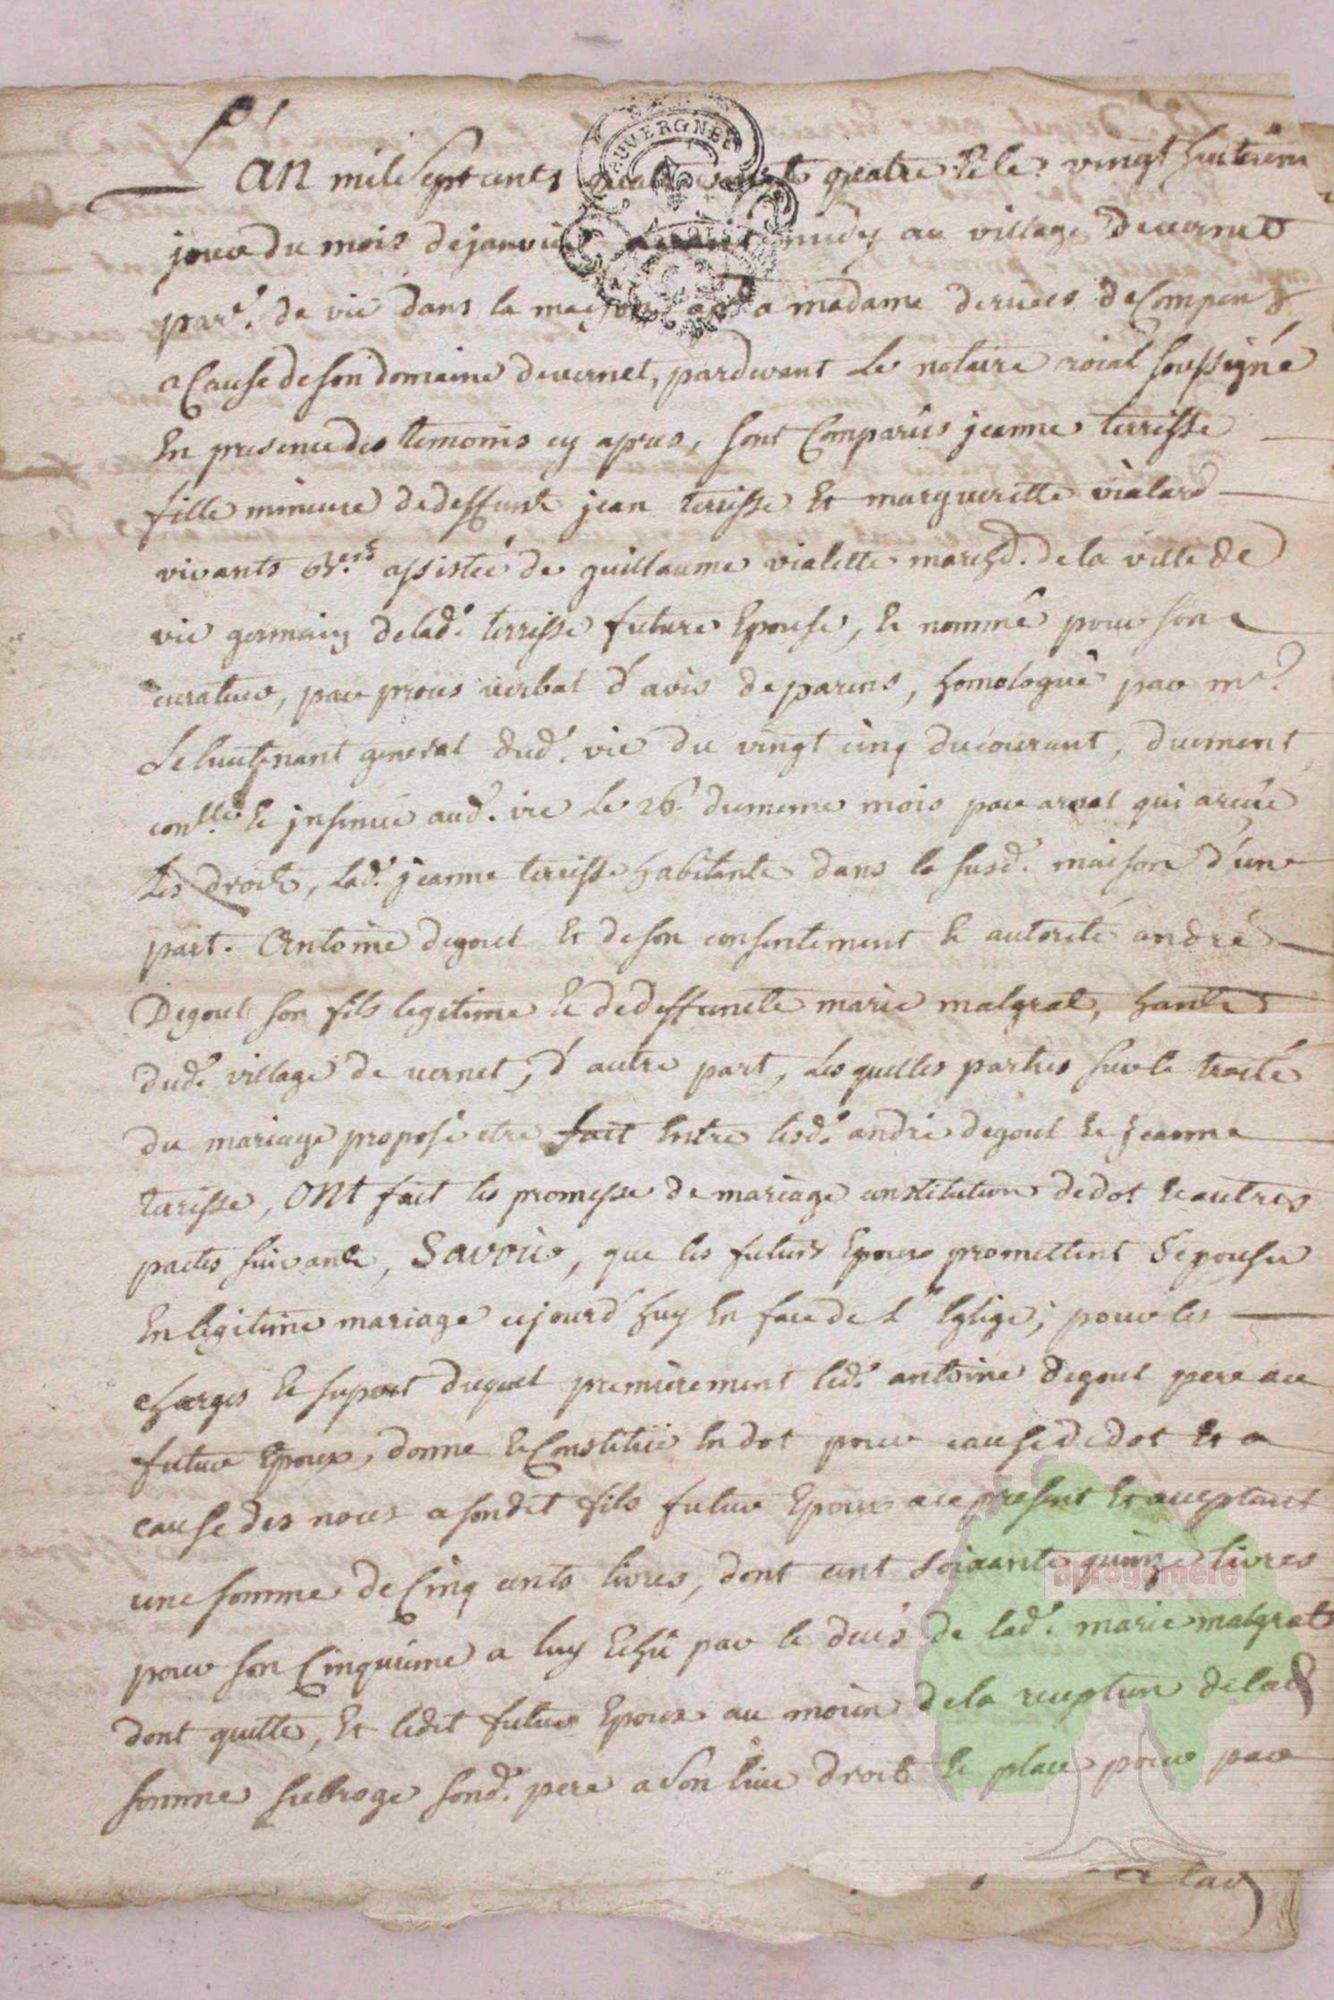 AUVERGNE
L'an mil sept cents quatre vingt quatre & le vingt huitieme
jour du mois de janvier avant midy au village de vernet
par.e de vic dans la maison app.t a madame de rives de Compen
a Cause de son domaine de vernet, pardevant Le notaire roial soussigné
En presence des temoins cy apres, sont Comparus jeanne terrisse
fille mineure de deffunt jean terrisse Et margueritte vialard
vivants assistée de guillaume vialette march.d de la ville de
vic germain de lad.e terrisse future Epouse, & nommé pour son
curateur, par proces verbal d'avis de parens, homologué par m.r
Le lieutenant general dud.t vic du vingt cinq du courant, duement
con.llé & jnsinué aud.t vic Le 26.e du meme mois par arnal qui a reçu
Les droits, lad.e jeanne terrisse habitante dans la susd.e maison d'une
part. Antoine degoul Et de son consentement & autorité andré
Degoul son fils legitime & de deffuncte marie malgrat, hants
dud.t village de vernet, d'autre part, Lesquelles parties sur le traité
du mariage proposé etre fait Entre lesd.s andré degoul & jeanne
terrisse, ONt fait les promesse de mariage constitution de dot & autres
pactes suivants, Savoir, que les futurs Epoux promettent s'epouser
En legitime mariage cejourd'huy En face de L'Eglise; pour les
charges & suport duquel premierement led.t antoine degoul pere au
futur Epoux, donne & Constitue En dot pour cause de dot Et a
cause des noces a sondit fils futur Epoux ace present Et acceptant
une somme de Cinq cents livres, dont cent soixante quinze livres
pour son Cinquieme a luy Echu par le decés de lad.e marie malgrat
dont quitte, Et ledit futur Epoux au moien de la reception de lad.e
somme subroge sond.t pere a son lieu droits & place pour par
aprogemere